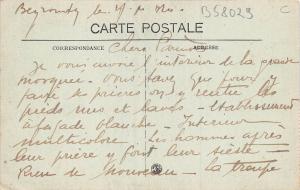 Beyrouth le
B58029
C
CARTE POSTALE
CORRESPONDANCE
ADRESSE
Chers Parents
Je vous envoie l'intérieur de la grande
mosquée. Vous savez que pour y
faire les prières on y rentre les
pieds nus et lavés. Etablissement
à façade blanche. Intérieur
multicolore. Les hommes après
leur prière y font leur sieste —
Rien de nouveau — la troupe